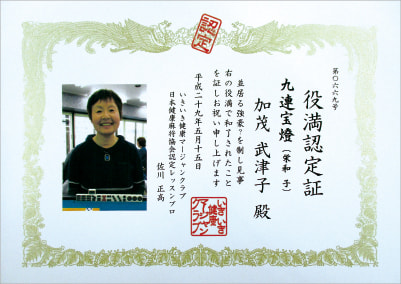 認定
第〇六六九号
役満認定証
九連宝燈(栄和 子)
加茂 武津子 殿
並居る強豪?を制し見事
右の役満で和了されたこと
を証しお祝い申し上げます
平成二十九年五月十五日
いきいき健康マージャンクラブ
日本健康麻将協会認定レッスンプロ
佐川 正高
いきいき
健康
マージャン
クラブ